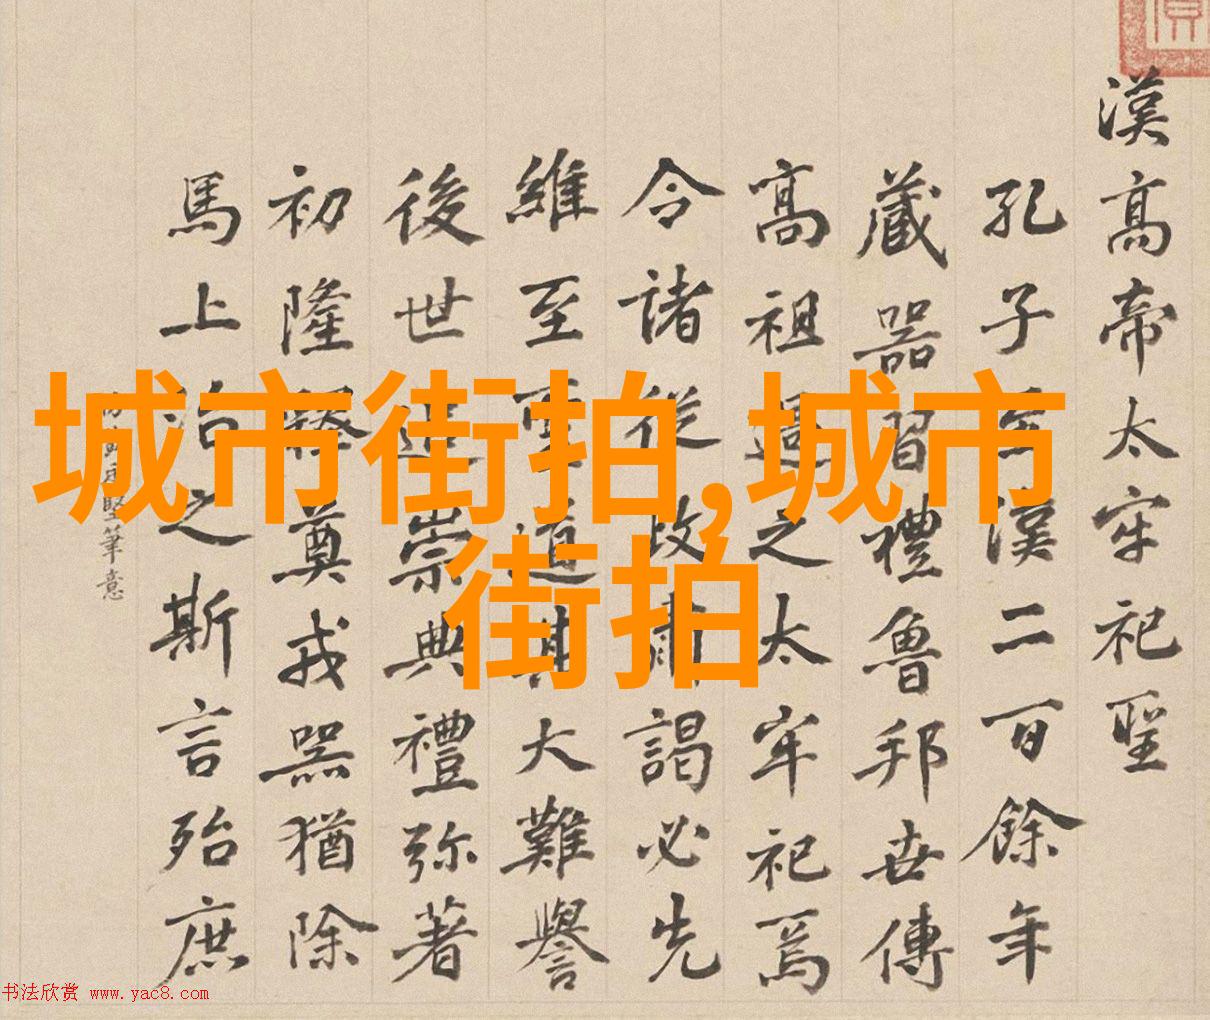 漢高帝太牢祀聖
孔子至漢二百餘年
藏器習禮魯邦世傳
高祖過之太牢祀焉
令諸從政肅謁必先
維至聖道其大難譽
後世追崇典禮弥著
初隆釋奠戎器猶除
馬上治之斯言殆庶
堅筆意
城市街拍,城市
街拍
书法欣赏 www.yac8.com